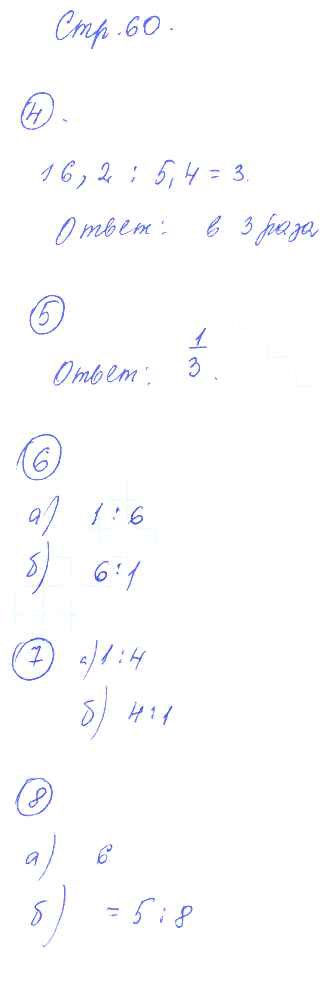 Стр. 60.
4.
16,2 : 5,4 = 3.
Ответ: в 3 раза
5
Ответ: 1/3.
6
а) 1 : 6
б) 6 : 1
7 а) 1 : 4
б) 4 : 1
8
а) 6
б) = 5 : 8